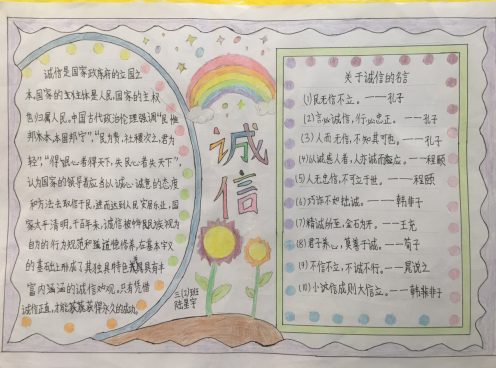 诚信是国家政府的立国之
本,国家的主体是人民,国家的主权
也归属人民,中国古代政治伦理强调"民惟
邦本,本固邦宁","民为贵,社稷次之,君为
轻","得民心者得天下,失民心者失天下",
认为国家的领导者应当以诚心诚意的态度
和方法去取信于民,进而达到人民安居乐业,国
家太平清明。千百年来,诚信被中华民族视为
自身的行为规范和道德修养,在基本字义
的基础上形成了其独具特色并具有丰
富内涵的诚信观。只有凭借
诚信正直,才能获得永久的成功。
诚
信
三(2)班
陆星宇
关于诚信的名言
(1)民无信不立。——孔子
(2)言必诚信,行必忠正。——孔子
(3)人而无信,不知其可也。——孔子
(4)以诚感人者,人亦诚而应。——程颐
(5)人无忠信,不可立于世。——程颐
(6)巧诈不如拙诚。——韩非子
(7)精诚所至,金石为开。——王充
(8)君子养心,莫善于诚。——荀子
(9)不信不立,不诚不行。——晁说之
(10)小信成则大信立。——韩非子